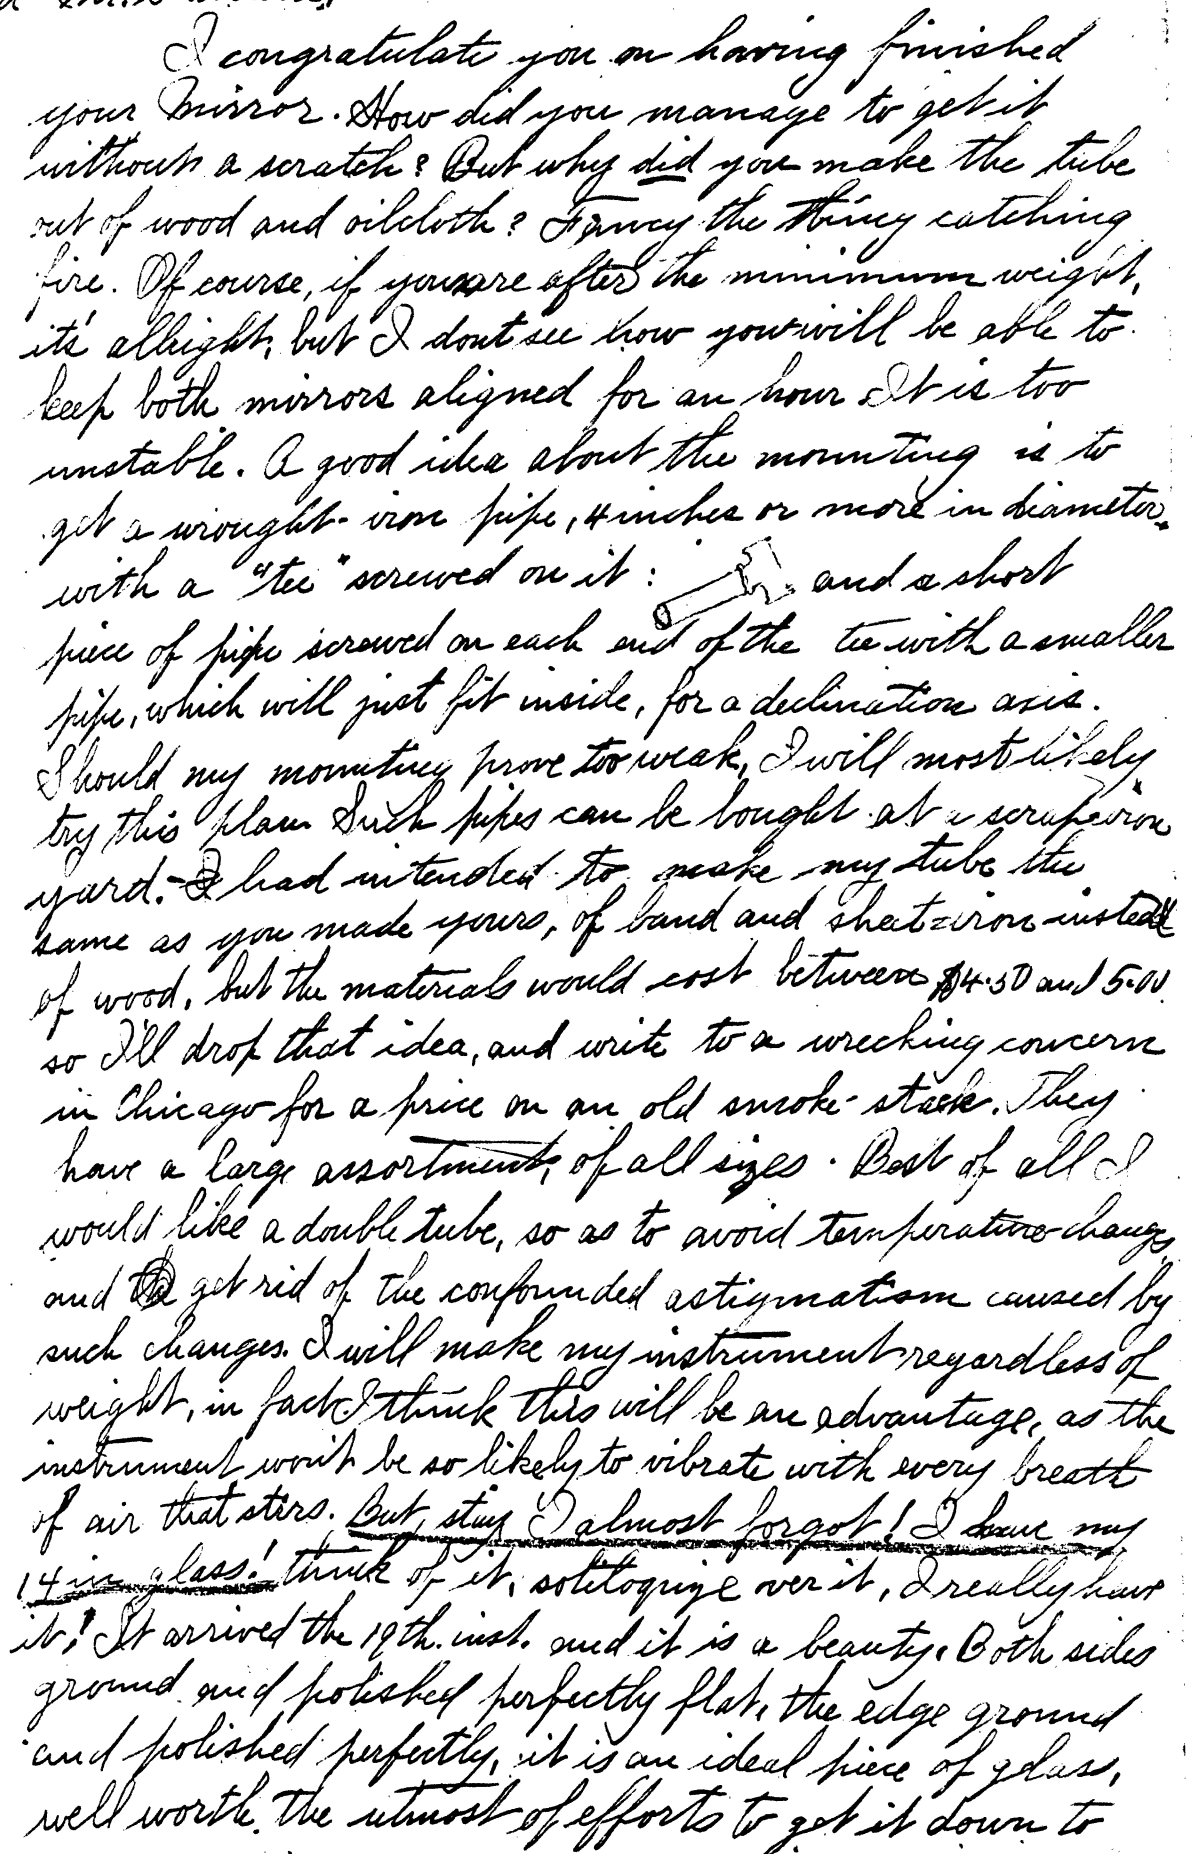 I congratulate you on having finished
your mirror. How did you manage to get it
without a scratch? But why did you make the tube
out of wood and oilcloth? Fancy the thing catching
fire. Of course, if you are after the minimum weight,
it's allright, but I dont see how you will be able to
keep both mirrors aligned for an hour. It is too
unstable. A good idea about the mounting is to
get a wrought-iron pipe, 4 inches or more in diameter,
with a "tee" screwed on it: and a short
piece of pipe screwed on each end of the tee with a smaller
pipe, which will just fit inside, for a declination axis.
Should my mounting prove too weak, I will most likely
try this plan. Such pipes can be bought at a scrap-iron
yard. - I had intended to make my tube the
same as you made yours, of band and sheet-iron instead
of wood, but the materials would cost between $4.50 and 5.00
so I'll drop that idea, and write to a wrecking concern
in Chicago for a price on an old smoke-stack. They
have a large assortment, of all sizes. Best of all I
would like a double tube, so as to avoid temperature changes
and get rid of the confounded astigmatism caused by
such changes. I will make my instrument regardless of
weight, in fact I think this will be an advantage, as the
instrument won't be so likely to vibrate with every breath
of air that stirs. But, stay I almost forgot! I have my
14 in glass! think of it, soliloquize over it, I really have
it! It arrived the 19th. inst. and it is a beauty. Both sides
ground and polished perfectly flat, the edge ground
and polished perfectly, it is an ideal piece of glass,
well worth the utmost of efforts to get it down to